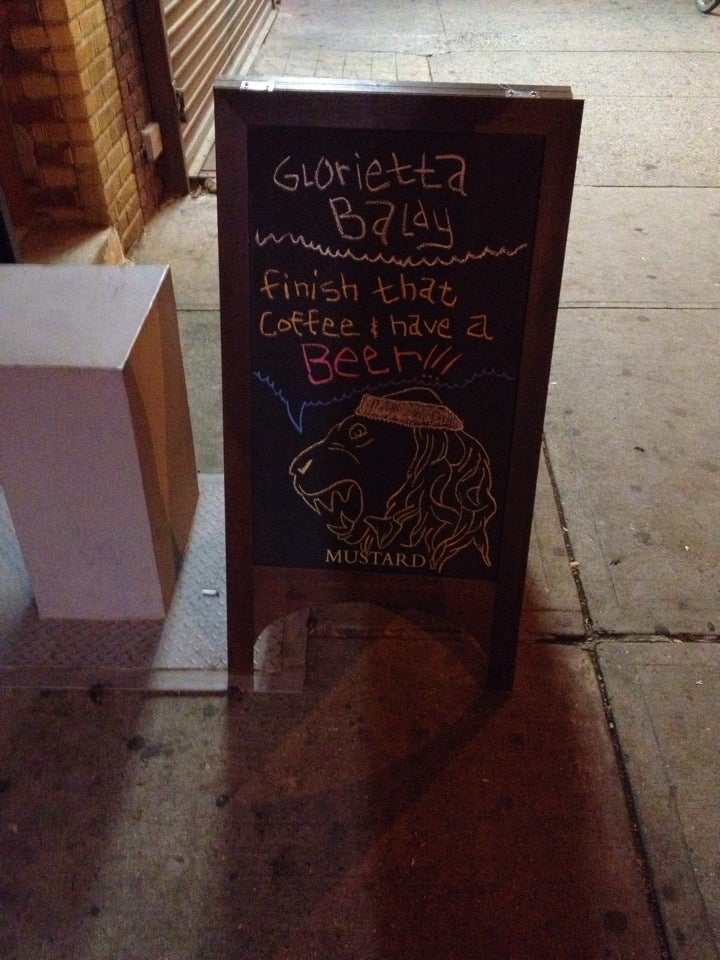 GLorietta
BaLdy
finish that
Coffee & have a
BEEr!!!
MUSTARD